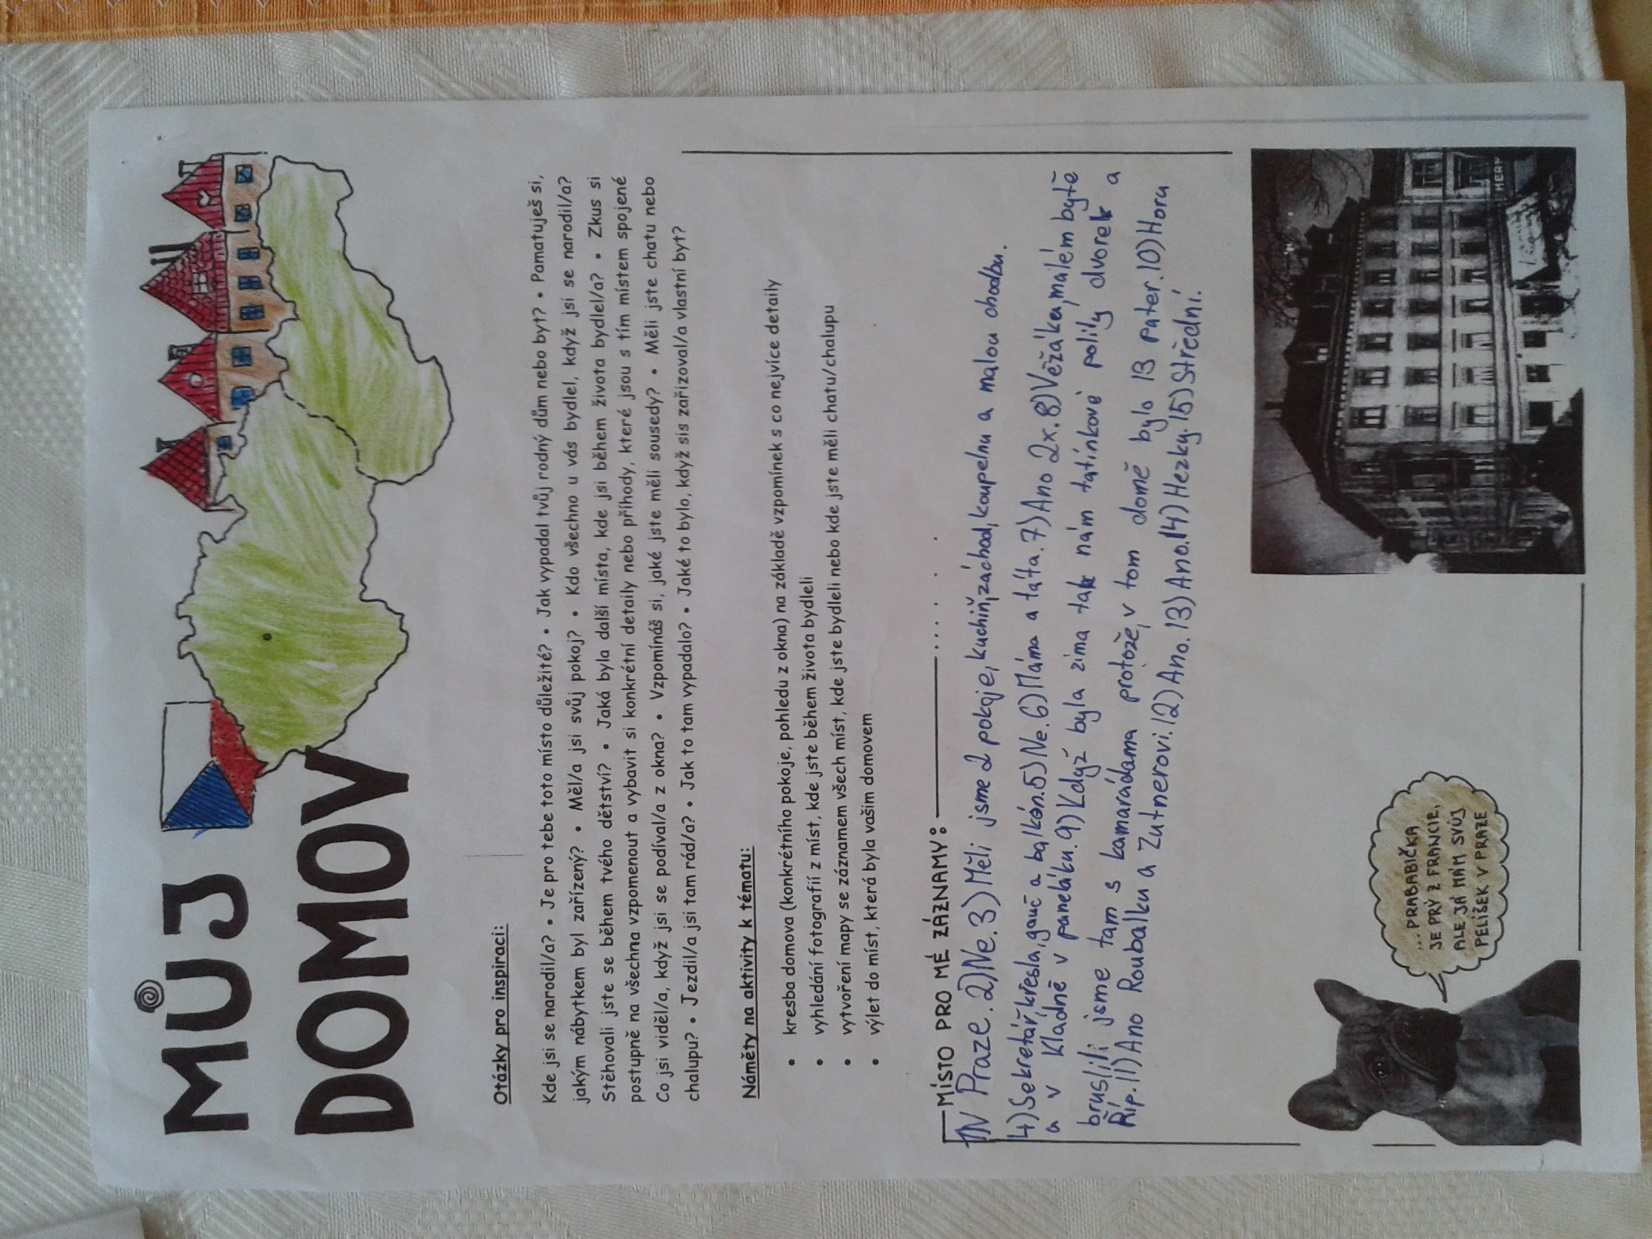 MŮJ
DOMOV
Otázky pro inspiraci:
Kde jsi se narodil/a? • Je pro tebe toto místo důležité? • Jak vypadal tvůj rodný dům nebo byt? • Pamatuješ si,
jakým nábytkem byl zařízený? • Měl/a jsi svůj pokoj? • Kdo všechno u vás bydlel, když jsi se narodil/a?
Stěhovali jste se během tvého dětství? • Jaká byla další místa, kde jsi během života bydlel/a? • Zkus si
postupně na všechna vzpomenout a vybavit si konkrétní detaily nebo příhody, které jsou s tím místem spojené
Co jsi viděl/a, když jsi se podíval/a z okna? • Vzpomínáš si, jaké jste měli sousedy? • Měli jste chatu nebo
chalupu? • Jezdil/a jsi tam rád/a? • Jak to tam vypadalo? • Jaké to bylo, když sis zařizoval/a vlastní byt?
Náměty na aktivity k tématu:
• kresba domova (konkrétního pokoje, pohledu z okna) na základě vzpomínek s co nejvíce detaily
• vyhledání fotografií z míst, kde jste během života bydleli
• vytvoření mapy se záznamem všech míst, kde jste bydleli nebo kde jste měli chatu/chalupu
• výlet do míst, která byla vašim domovem
MÍSTO PRO MÉ ZÁZNAMY:
1)V Praze. 2)Ne. 3)Měli jsme 2 pokoje, kuchiň, záchod, koupelnu a malou chodbu.
4)Sekretář, křesla, gauč a balkón. 5)Ne. 6)Máma a táta. 7)Ano 2x. 8)Věžáken, malém bytě
a v Kladně v paneláku. 9)Když byla zima tak nám tatínkové polily dvorek a
bruslili jsme tam s kamarádama protože, v tom domě bylo 13 pater. 10)Hora
Říp. 11)Ano Roubalku a Zutnerovi. 12)Ano. 13)Ano. 14)Hezky. 15)Střední.
... PRABABIČKA
JE PRÝ Z FRANCIE,
ALE JÁ MÁM SVŮJ
PELÍŠEK V PRAZE